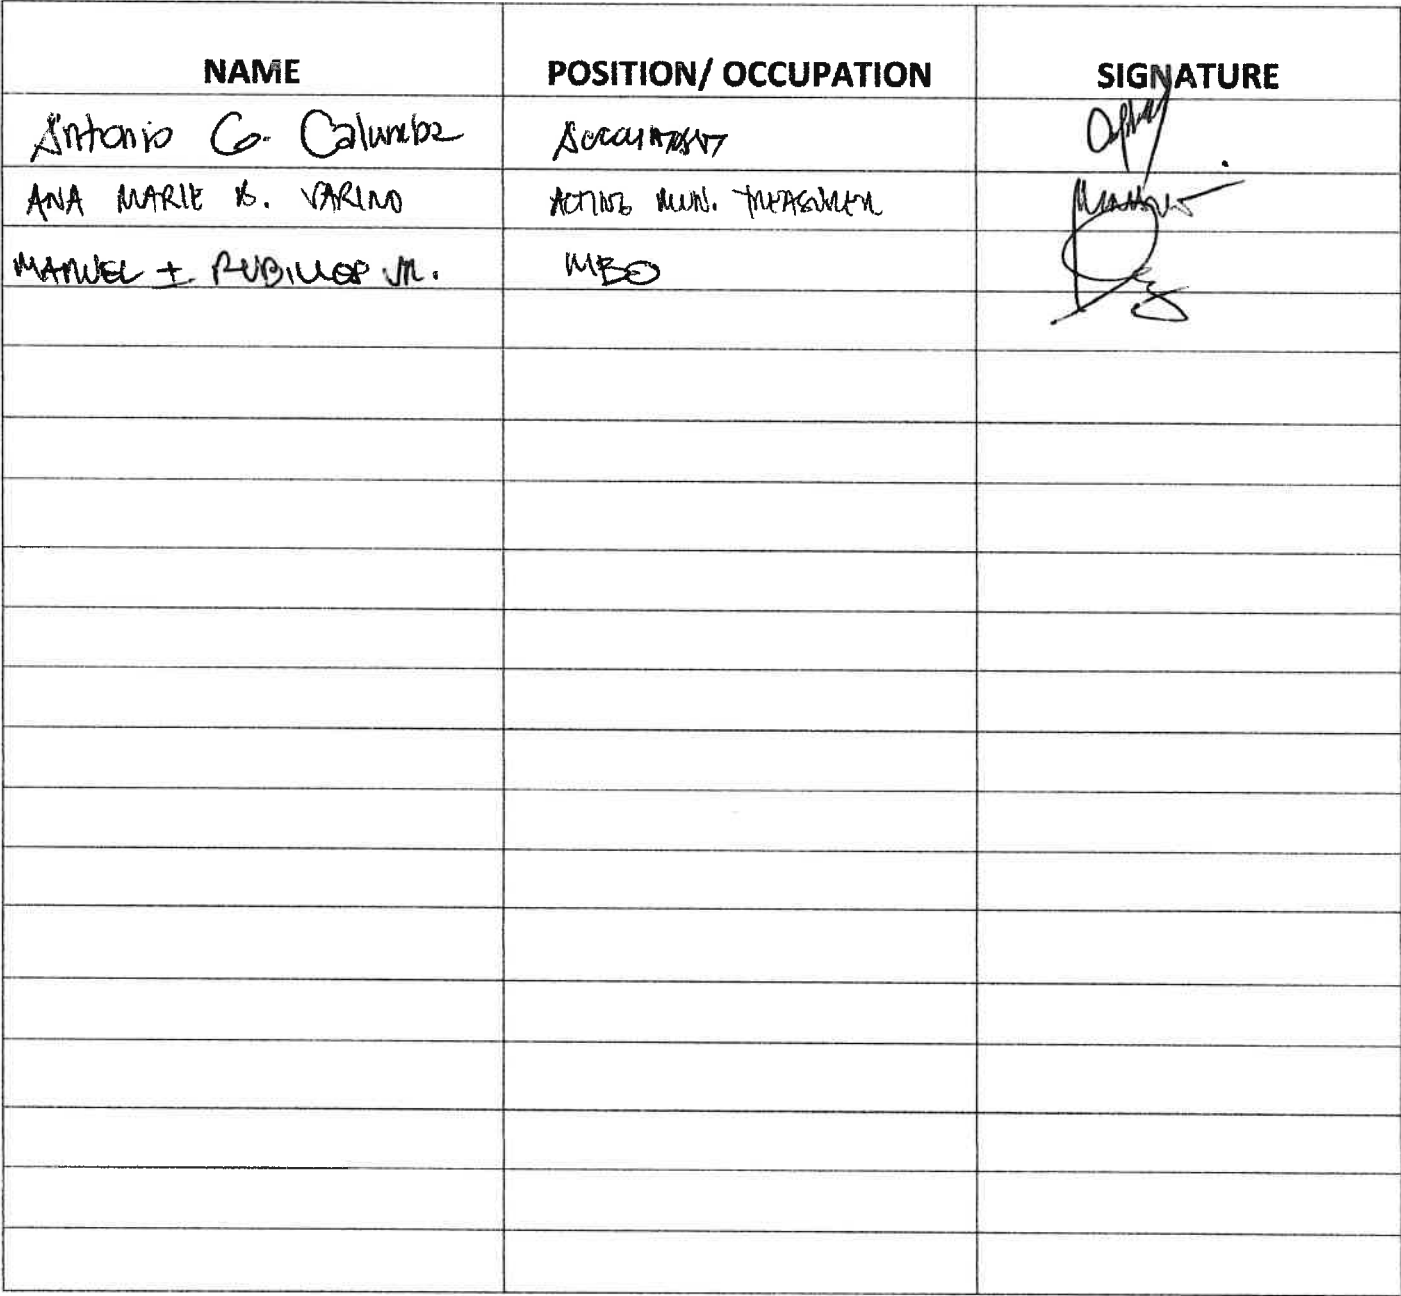 NAME POSITION/ OCCUPATION SIGNATURE
Antonio G. Calumba Accountant
ANA MARIE B. VARINO ACTING MUN. TREASURER
MANUEL I. RUBILLOS JR. MBO